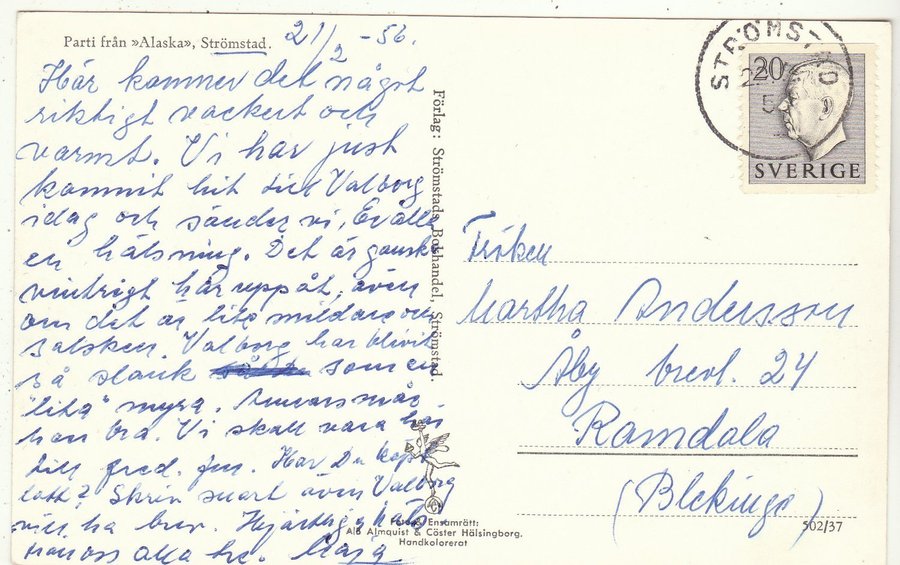 Parti från »Alaska», Strömstad.
21/2 -56.
Här kommer det något
riktigt vackert och
varmt. Vi har just
kommit hit till Valborg
idag och sänder vi,
en hälsning. Det är ganska
vintrigt här uppåt, även
om det är lite mildare och
solsken. Valborg har blivit
så slank som en
"lita" myra. Annars mår
hon bra. Vi skall vara här
till fred. fm. Har Du köpt
lott? Skriv snart även Valborg
vill ha brev. Hjärtliga häls-
från oss alla tre. Maja
Förlag: Strömstads Bokhandel, Strömstad.
Foto & Ensamrätt:
Alb Almquist & Cöster Hälsingborg.
Handkolorerat
STRÖMSTAD
20
SVERIGE
Fröken
Martha Andersson
Åby brevl. 24
Ramdala
(Blekinge)
502/37